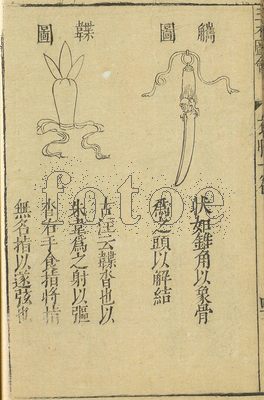 觿圖
狀如錐角以象骨
爲之頭以解結
韘圖
古注云韘沓也以
朱韋爲之射以彄
沓右手食指將指
無名指以遂弦也
fotoe